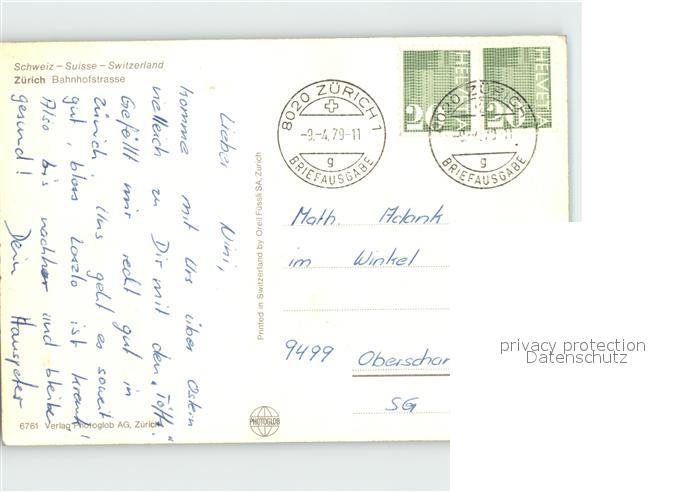 Schweiz – Suisse – Switzerland
Zürich Bahnhofstrasse
Lieber Nini,
komme mit Urs über Ostern
vielleich zu Dir mit dem „Töff."
Gefällt mir recht gut in
Zürich. Uns geht es soweit
gut, bloss Laszlo ist krank!
Also bis nachher und bleibe
gesund!
Dein Hanspeter
6761 Verlag Photoglob AG, Zürich
Printed in Switzerland by Orell Füssli SA, Zürich
PHOTOGLOB
8020 ZÜRICH 1
-9.-4.79-11
g
BRIEFAUSGABE
HELVETIA
20
HELVETIA
20
8020 ZÜRICH
79-11
g
BRIEFAUSGABE
Math. Adank
im Winkel
9499 Oberschan
SG
privacy protection
Datenschutz